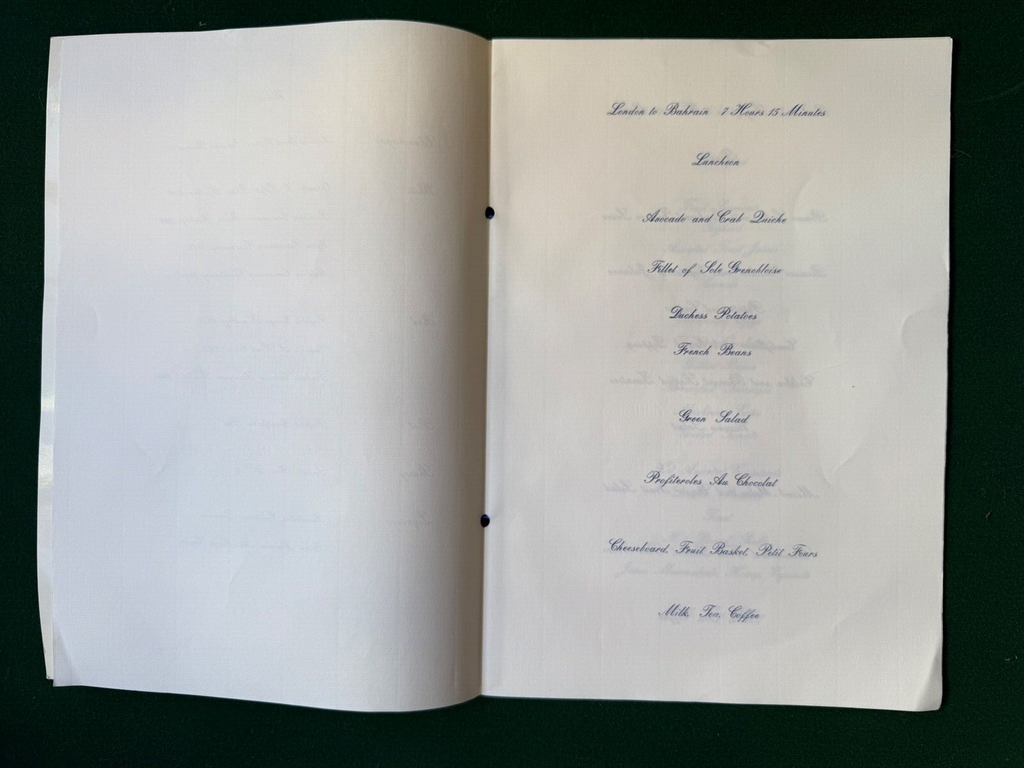 London to Bahrain 7 Hours 15 Minutes
Luncheon
Avocado and Crab Quiche
Fillet of Sole Grenobloise
Duchess Potatoes
French Beans
Green Salad
Profiteroles Au Chocolat
Cheeseboard, Fruit Basket, Petit Fours
Milk, Tea, Coffee